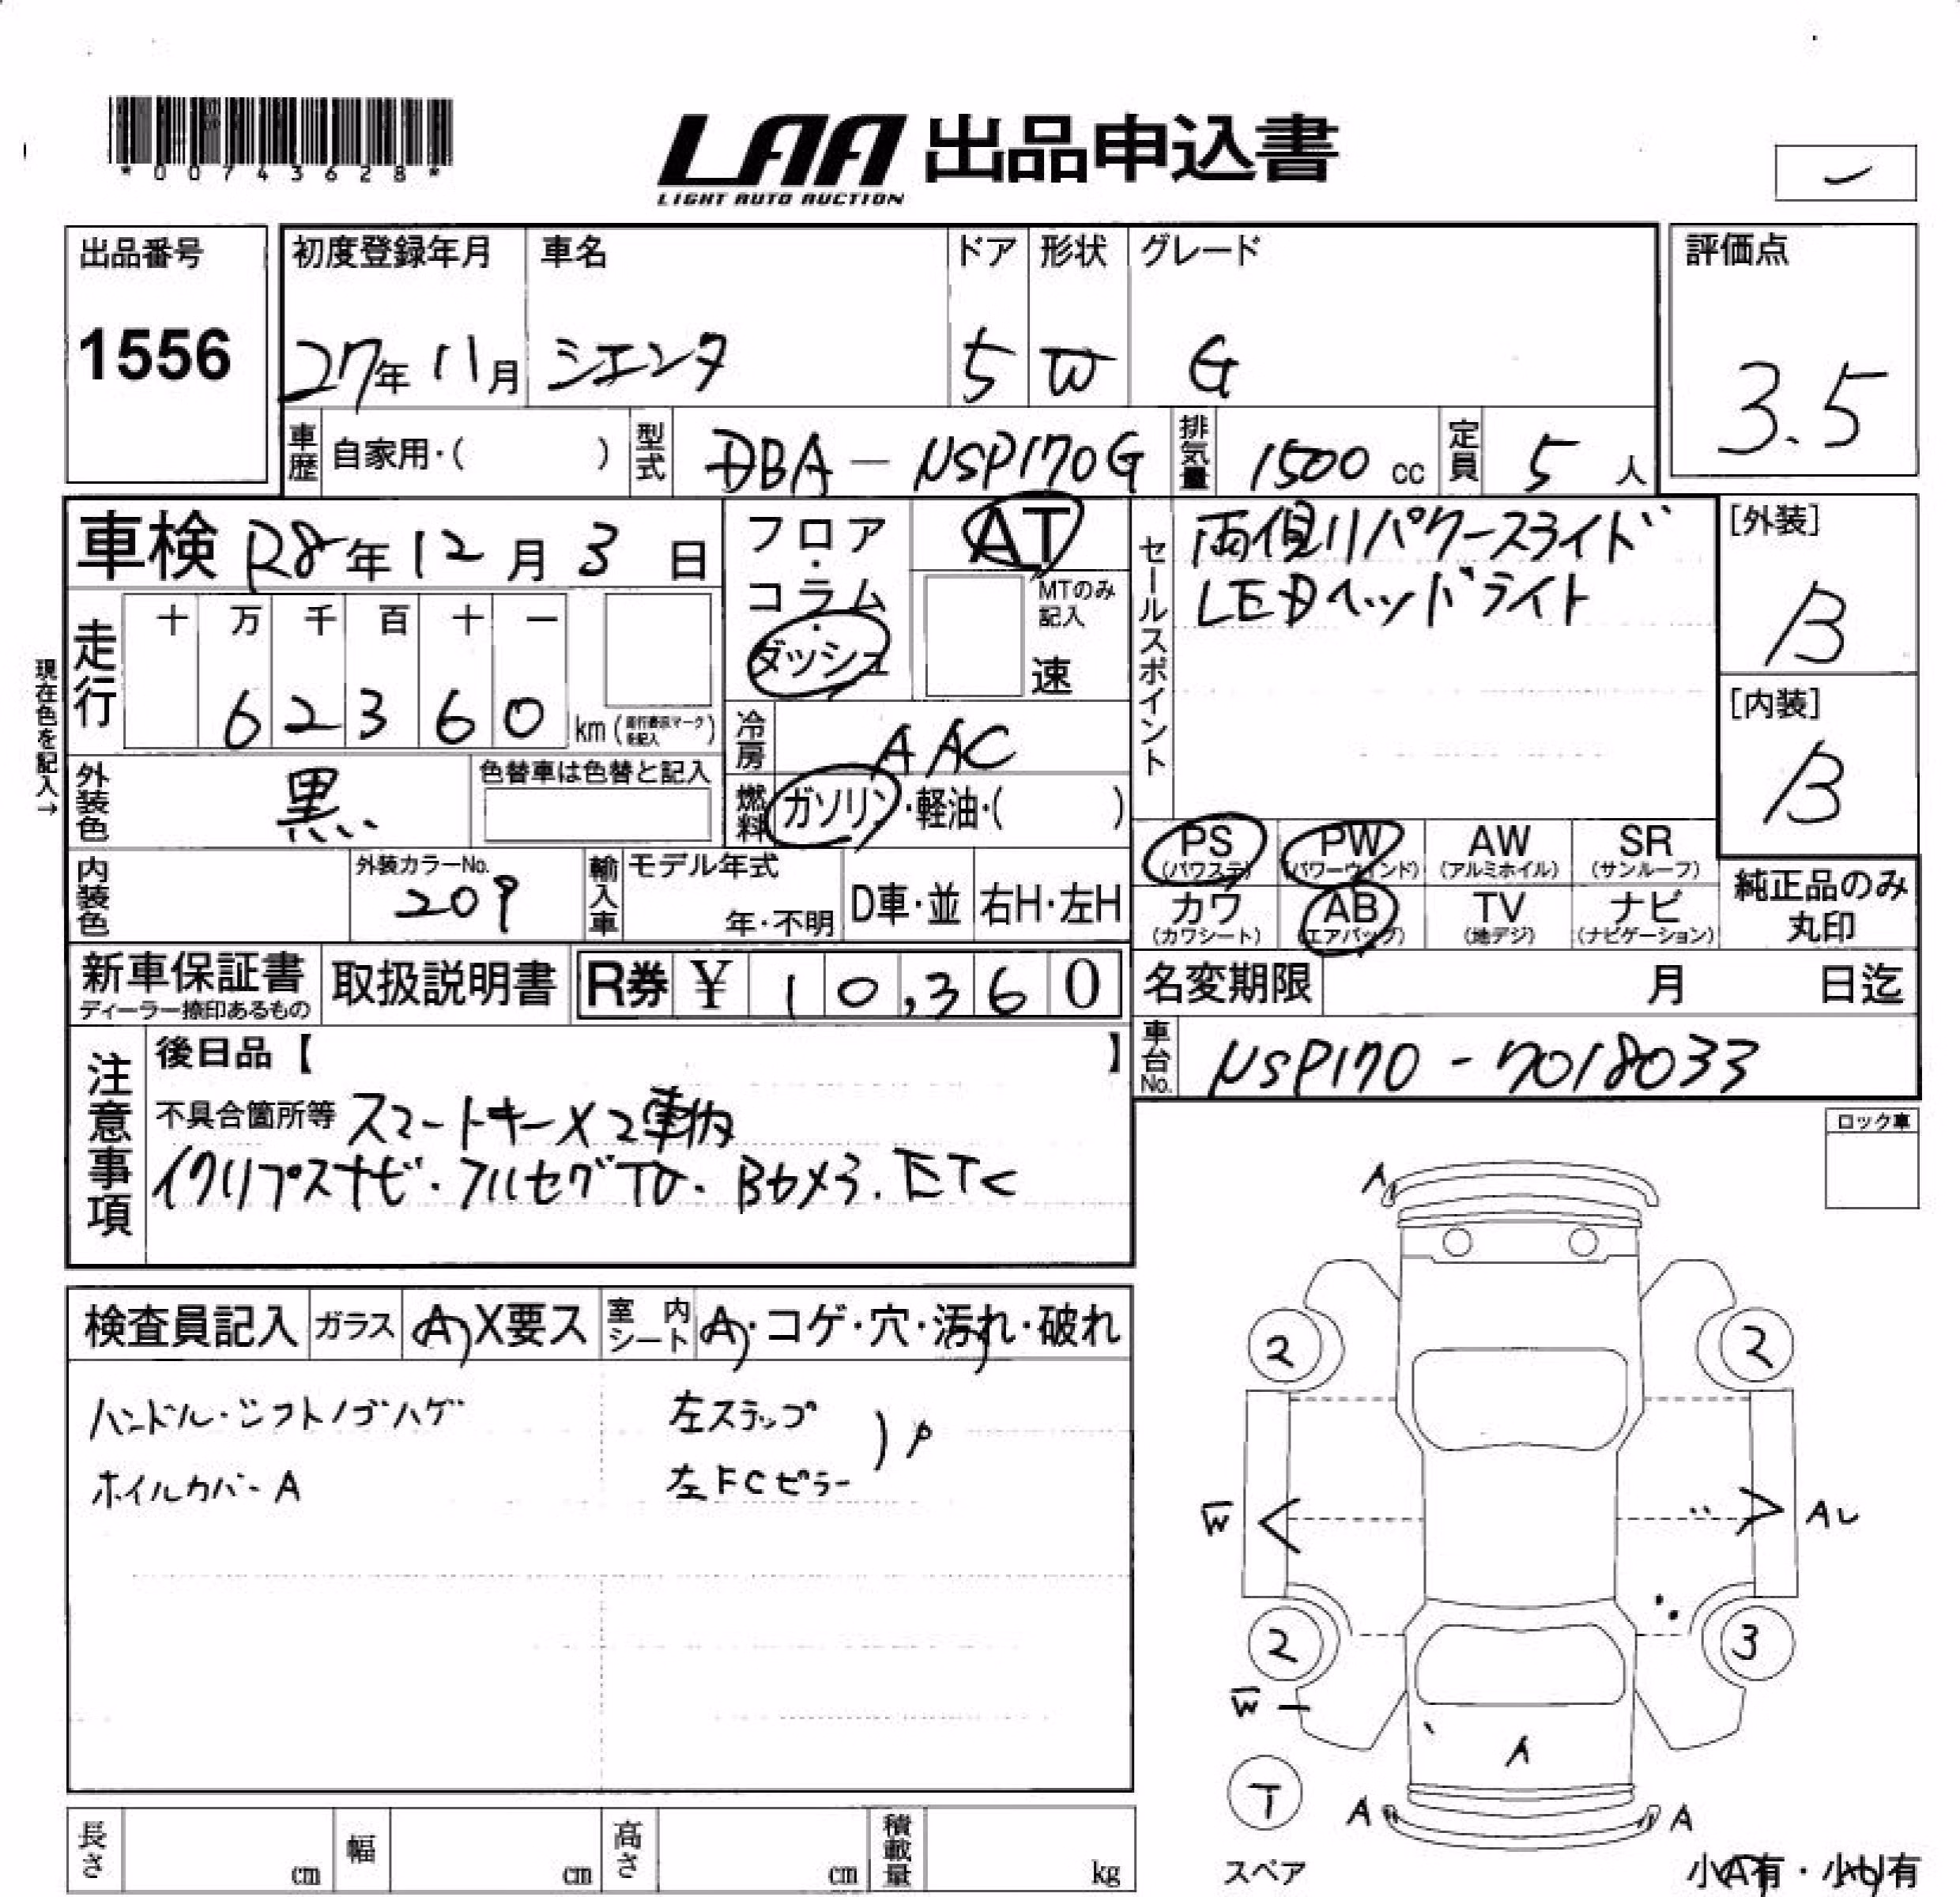 *00743628*
LAA 出品申込書
LIGHT AUTO AUCTION
出品番号
1556
初度登録年月
27年 11月
車名
シエンタ
ドア
5
形状
W
グレード
G
評価点
3.5
車歴 自家用・( )
型式 DBA-NSP170G
排気量 1500 cc
定員 5 人
車検 R8年 12月 3日
走行
十 万 千 百 十 一
6 2 3 6 0 km (走行表示マークを記入)
現在色を記入→
フロア・コラム・ダッシュ
AT
MTのみ記入
速
冷房 AAC
燃料 ガソリン・軽油・( )
セールスポイント
両側パワースライド
LEDヘッドライト
[外装]
B
[内装]
B
外装色 黒
色替車は色替と記入
内装色
外装カラーNo.
209
輸入車
モデル年式
年・不明
D車・並
右H・左H
PS (パワステ)
PW (パワーウインド)
AW (アルミホイル)
SR (サンルーフ)
カワ (カワシート)
AB (エアバッグ)
TV (地デジ)
ナビ (ナビゲーション)
純正品のみ丸印
新車保証書
ディーラー捺印あるもの
取扱説明書
R券 ¥ 10,360
名変期限 月 日迄
車台No. NSP170-7018033
注意事項
後日品【 】
不具合箇所等 スマートキー×2車内
イクリプスナビ・フルセグTV・Bカメラ.ETC
ロック車
検査員記入
ガラス A X要ス
室内シート A・コゲ・穴・汚れ・破れ
ハンドル・シフトノブハゲ
ホイルカバーA
左ステップ
左FCピラー
)P
A
2
2
W
A
2
3
W
A
T
スペア
A
A
小A有・小U有
長さ cm
幅 cm
高さ cm
積載量 kg